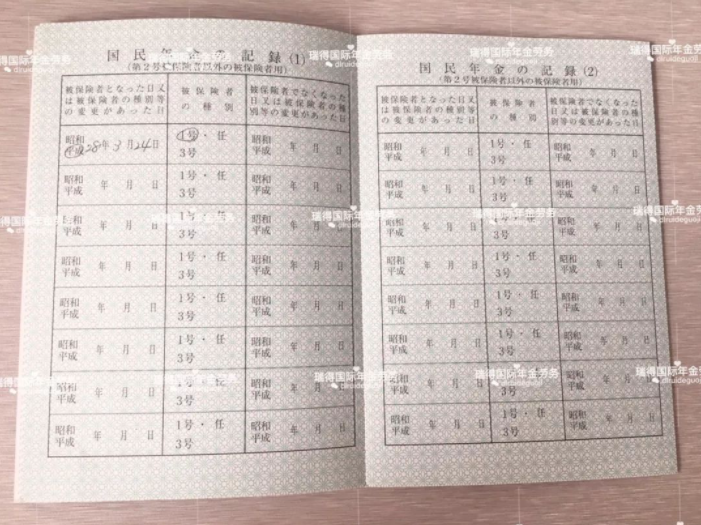 国民年金の記録(1)
(第2号被保険者以外の被保険者用)
被保険者となった日又は被保険者の種別等の変更があった日
被保険者の種別
被保険者でなくなった日又は被保険者の種別等の変更があった日
昭和
平成 28年3月24日
1号・任
3号
昭和
平成 年 月 日
昭和
平成 年 月 日
1号・任
3号
昭和
平成 年 月 日
昭和
平成 年 月 日
1号・任
3号
昭和
平成 年 月 日
昭和
平成 年 月 日
1号・任
3号
昭和
平成 年 月 日
昭和
平成 年 月 日
1号・任
3号
昭和
平成 年 月 日
昭和
平成 年 月 日
1号・任
3号
昭和
平成 年 月 日
昭和
平成 年 月 日
1号・任
3号
昭和
平成 年 月 日
昭和
平成 年 月 日
1号・任
3号
昭和
平成 年 月 日
国民年金の記録(2)
(第2号被保険者以外の被保険者用)
被保険者となった日又は被保険者の種別等の変更があった日
被保険者の種別
被保険者でなくなった日又は被保険者の種別等の変更があった日
昭和
平成 年 月 日
1号・任
3号
昭和
平成 年 月 日
昭和
平成 年 月 日
1号・任
3号
昭和
平成 年 月 日
昭和
平成 年 月 日
1号・任
3号
昭和
平成 年 月 日
昭和
平成 年 月 日
1号・任
3号
昭和
平成 年 月 日
昭和
平成 年 月 日
1号・任
3号
昭和
平成 年 月 日
昭和
平成 年 月 日
1号・任
3号
昭和
平成 年 月 日
昭和
平成 年 月 日
1号・任
3号
昭和
平成 年 月 日
昭和
平成 年 月 日
1号・任
3号
昭和
平成 年 月 日
瑞得国际年金劳务